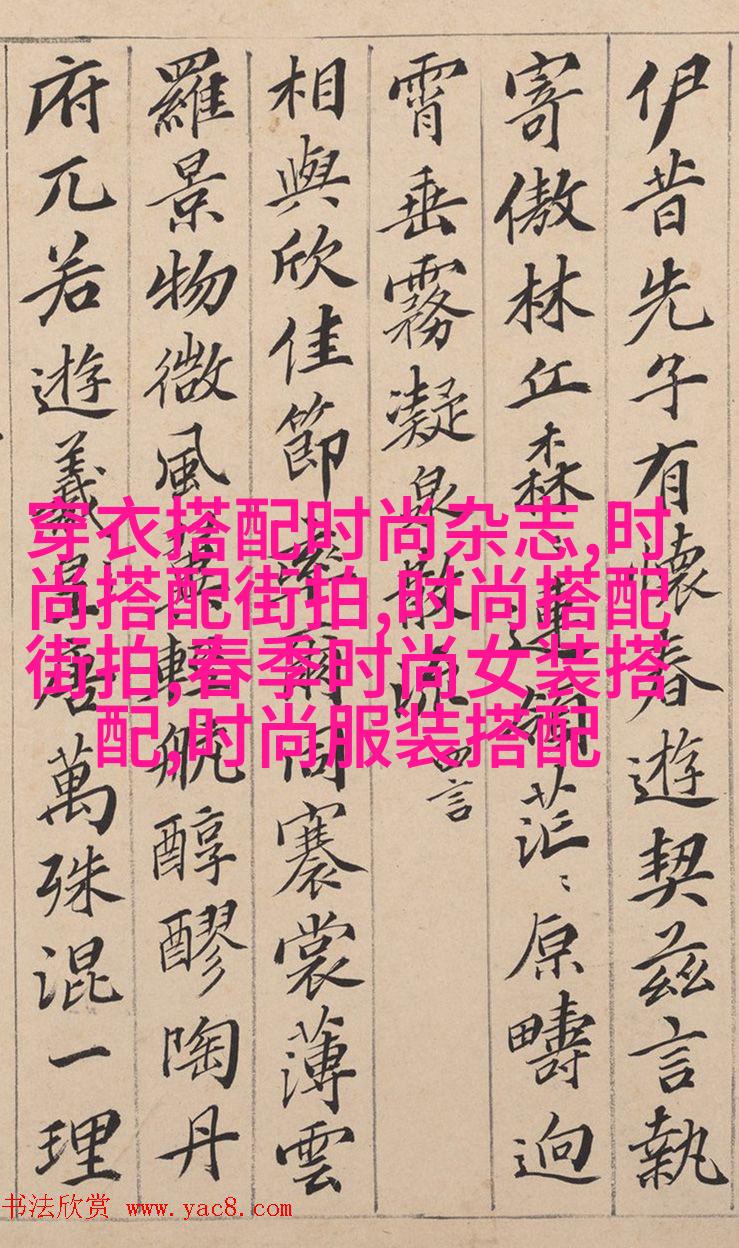 伊昔先子有懷春遊契茲言執
寄傲林丘森〻連嶺茫〻原疇逈
霄垂霧凝泉散流 四言
相與欣佳節率爾同褰裳薄雲
羅景物微風翼輕航醇醪陶丹
府兀若遊羲皇唐萬殊混一理
穿衣搭配,时尚杂志,时
尚搭配街拍,时尚搭配
街拍,春季时尚女装搭
配,时尚服装搭配
书法欣赏 www.yac8.com